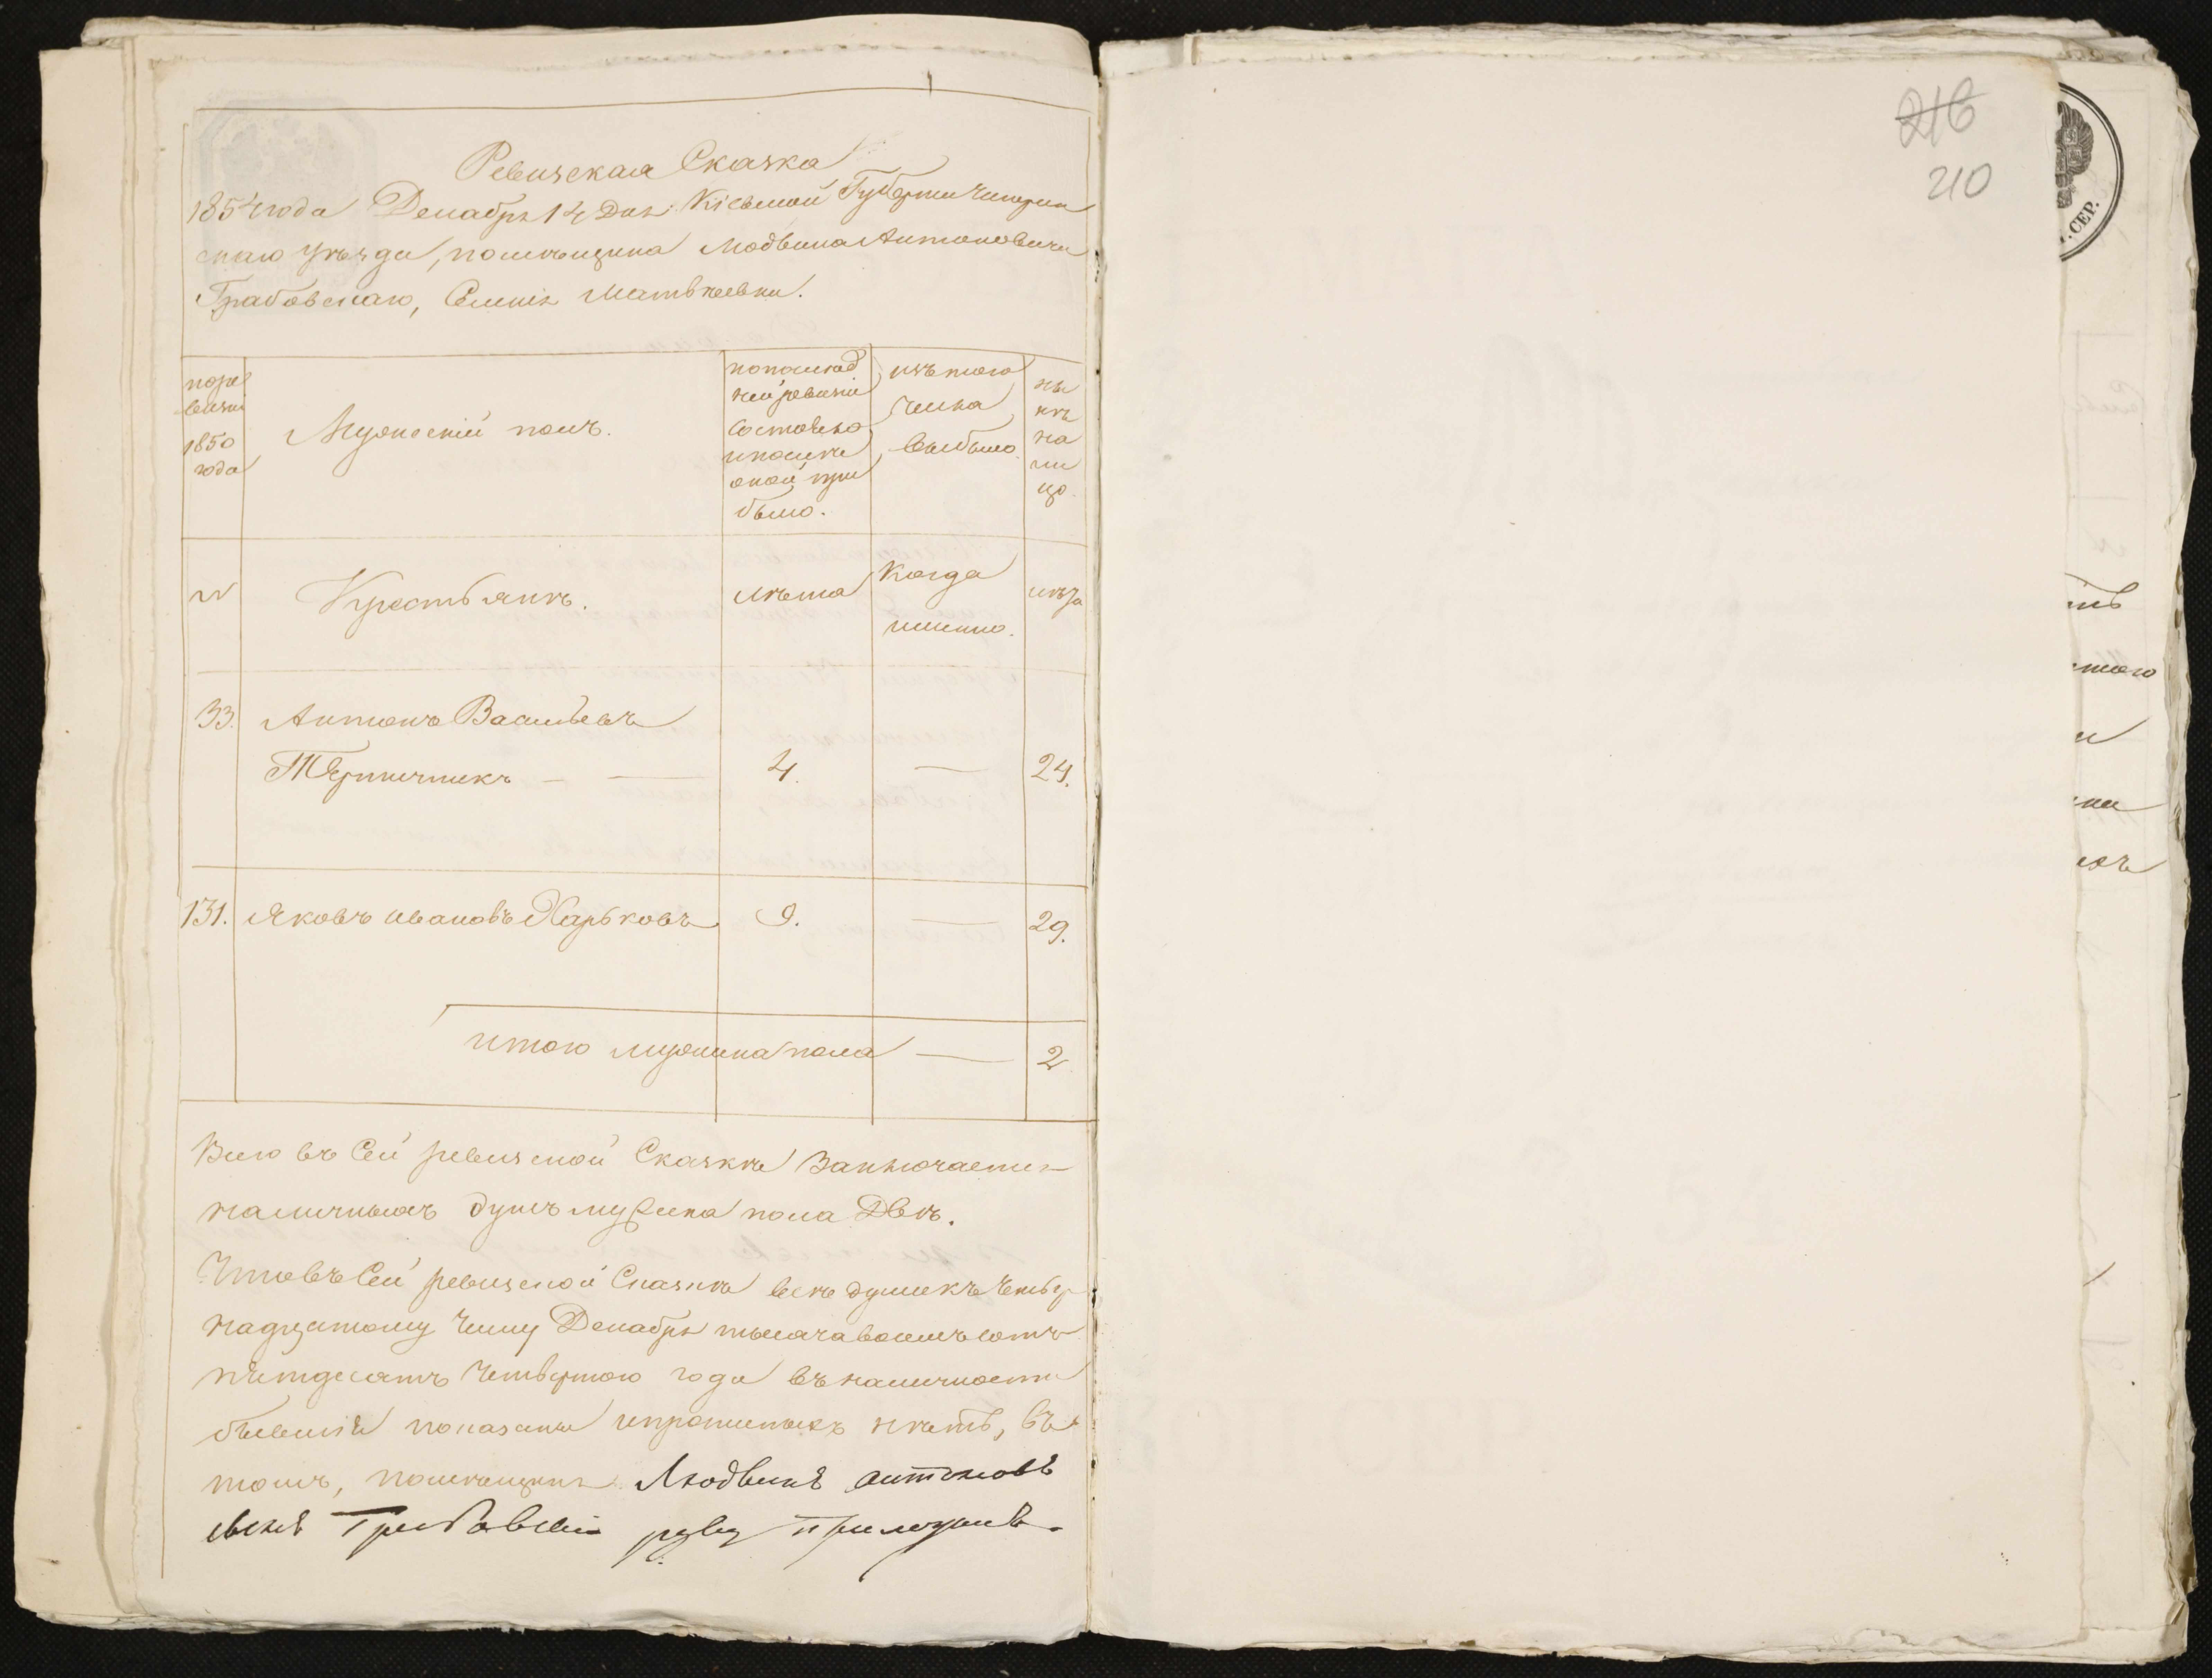 Ревизская Сказка
1854 года Декабря 14 Дня Кіевской Губерніи Чигирин
скаго уѣзда, помѣщика Людвика Антоновича
Грабовскаго, Селенія Матвѣевки.
по ре
визіи
1850
года
Мужескій полъ.
по послѣд
ней ревизіи
Состояло
и послѣ
оной при
было.
изъ того
числа
выбыло.
ны
нѣ
на
ли
цо.
№
Крестьянъ.
лѣта
Когда
именно.
лѣта
33.
Антонъ Васильевъ
4.
—
24.
131.
Яковъ Ивановъ Харьковъ
9.
—
29.
итого мужеска пола — 2
Всего въ Сей ревизской Сказкѣ Заключается
наличныхъ душъ мужеска пола Двѣ.
Что въ Сей ревизской Сказкѣ всѣ души къ Четыр
надцатому числу Декабря тысяча восемьсотъ
пятдесятъ Четвертого года въ наличности
бывшія показаны и прописныхъ нѣтъ, въ
томъ, помѣщикъ Людвикъ Антоновъ
Грабовскій руку приложилъ.
216
210
. СЕР.